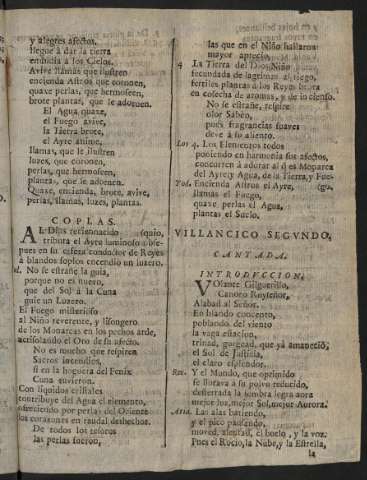 y alegres afectos,
llegue à dar la tierra
embidia à los Cielos.
Avive llamas que ilustren
encienda Astros que coronen,
quaxe perlas, que hermoseen,
brote plantas, que le adornen.
El Agua quaxe,
el Fuego avive,
la Tierra brote,
el Ayre anime,
llamas, que le ilustren
luzes, que coronen,
perlas, que hermoseen,
plantas, que le adornen.
Quaxe, encienda, brote, avive,
perlas, llamas, luzes, plantas.
COPLAS.
AL Dios reciennacido
tributa el Ayre luminoso
pues en su esfera conductor de Reyes
à blandos soplos encendio un luzero.
No se estrañe la guia,
porque no es nuevo,
que del Sol à la Cuna
guie un Luzero.
El Fuego misterioso
al Niño reverente, y lisongero
de los Monarcas en los pechos arde,
acrisolando el Oro de su afecto.
No es mucho que respiren
Sacros incendios,
si en la hoguera del Fenix
Cuna tuvieron.
Con liquidos cristales
contribuye del Agua el elemento,
ofreciendo por perlas del Oriente
los corazones en raudal deshechos.
De todos los tesoros
las perlas fueron,
las que en el Niño hallaron
mayor aprecio.
4 La Tierra del Dios Niño
fecundada de lagrimas al riego,
fertiles plantas à los Reyes brota
en cosecha de aromas, y de incienso.
No se estrañe, respire
olor Sabèo,
pues fragrancias suaves
deve à su aliento.
Los 4. Los Elementos todos
poniendo en harmonia sus afectos,
concurren à adorar al
del Ayre, y Agua, de la Tierra, y Fue-
Tod. Encienda Astros el Ayre, (go,
llamas el Fuego,
quaxe perlas el Agua,
plantas el Suelo.
VILLANCICO SEGVNDO,
CANTADA.
INTRODVCCION,
VOlante Gilguerillo,
Canoro Ruyseñor,
Alabad al Señor.
En blando concento,
poblando del viento
la vaga estacion,
trinad, gorgead, que yà amaneciò,
el Sol de Justicia,
el claro esplendor.
Rec. Y el Mundo, que oprimido
se llorava à su polvo reducido,
desterrada la sombra
mejor luz, mejor Sol, mejor Aurora.
Aria. Las alas batiendo,
y el pico pausando,
moved, alentad, el buelo, y la voz.
Pues el Rocio, la Nube, y la Estrella,
la